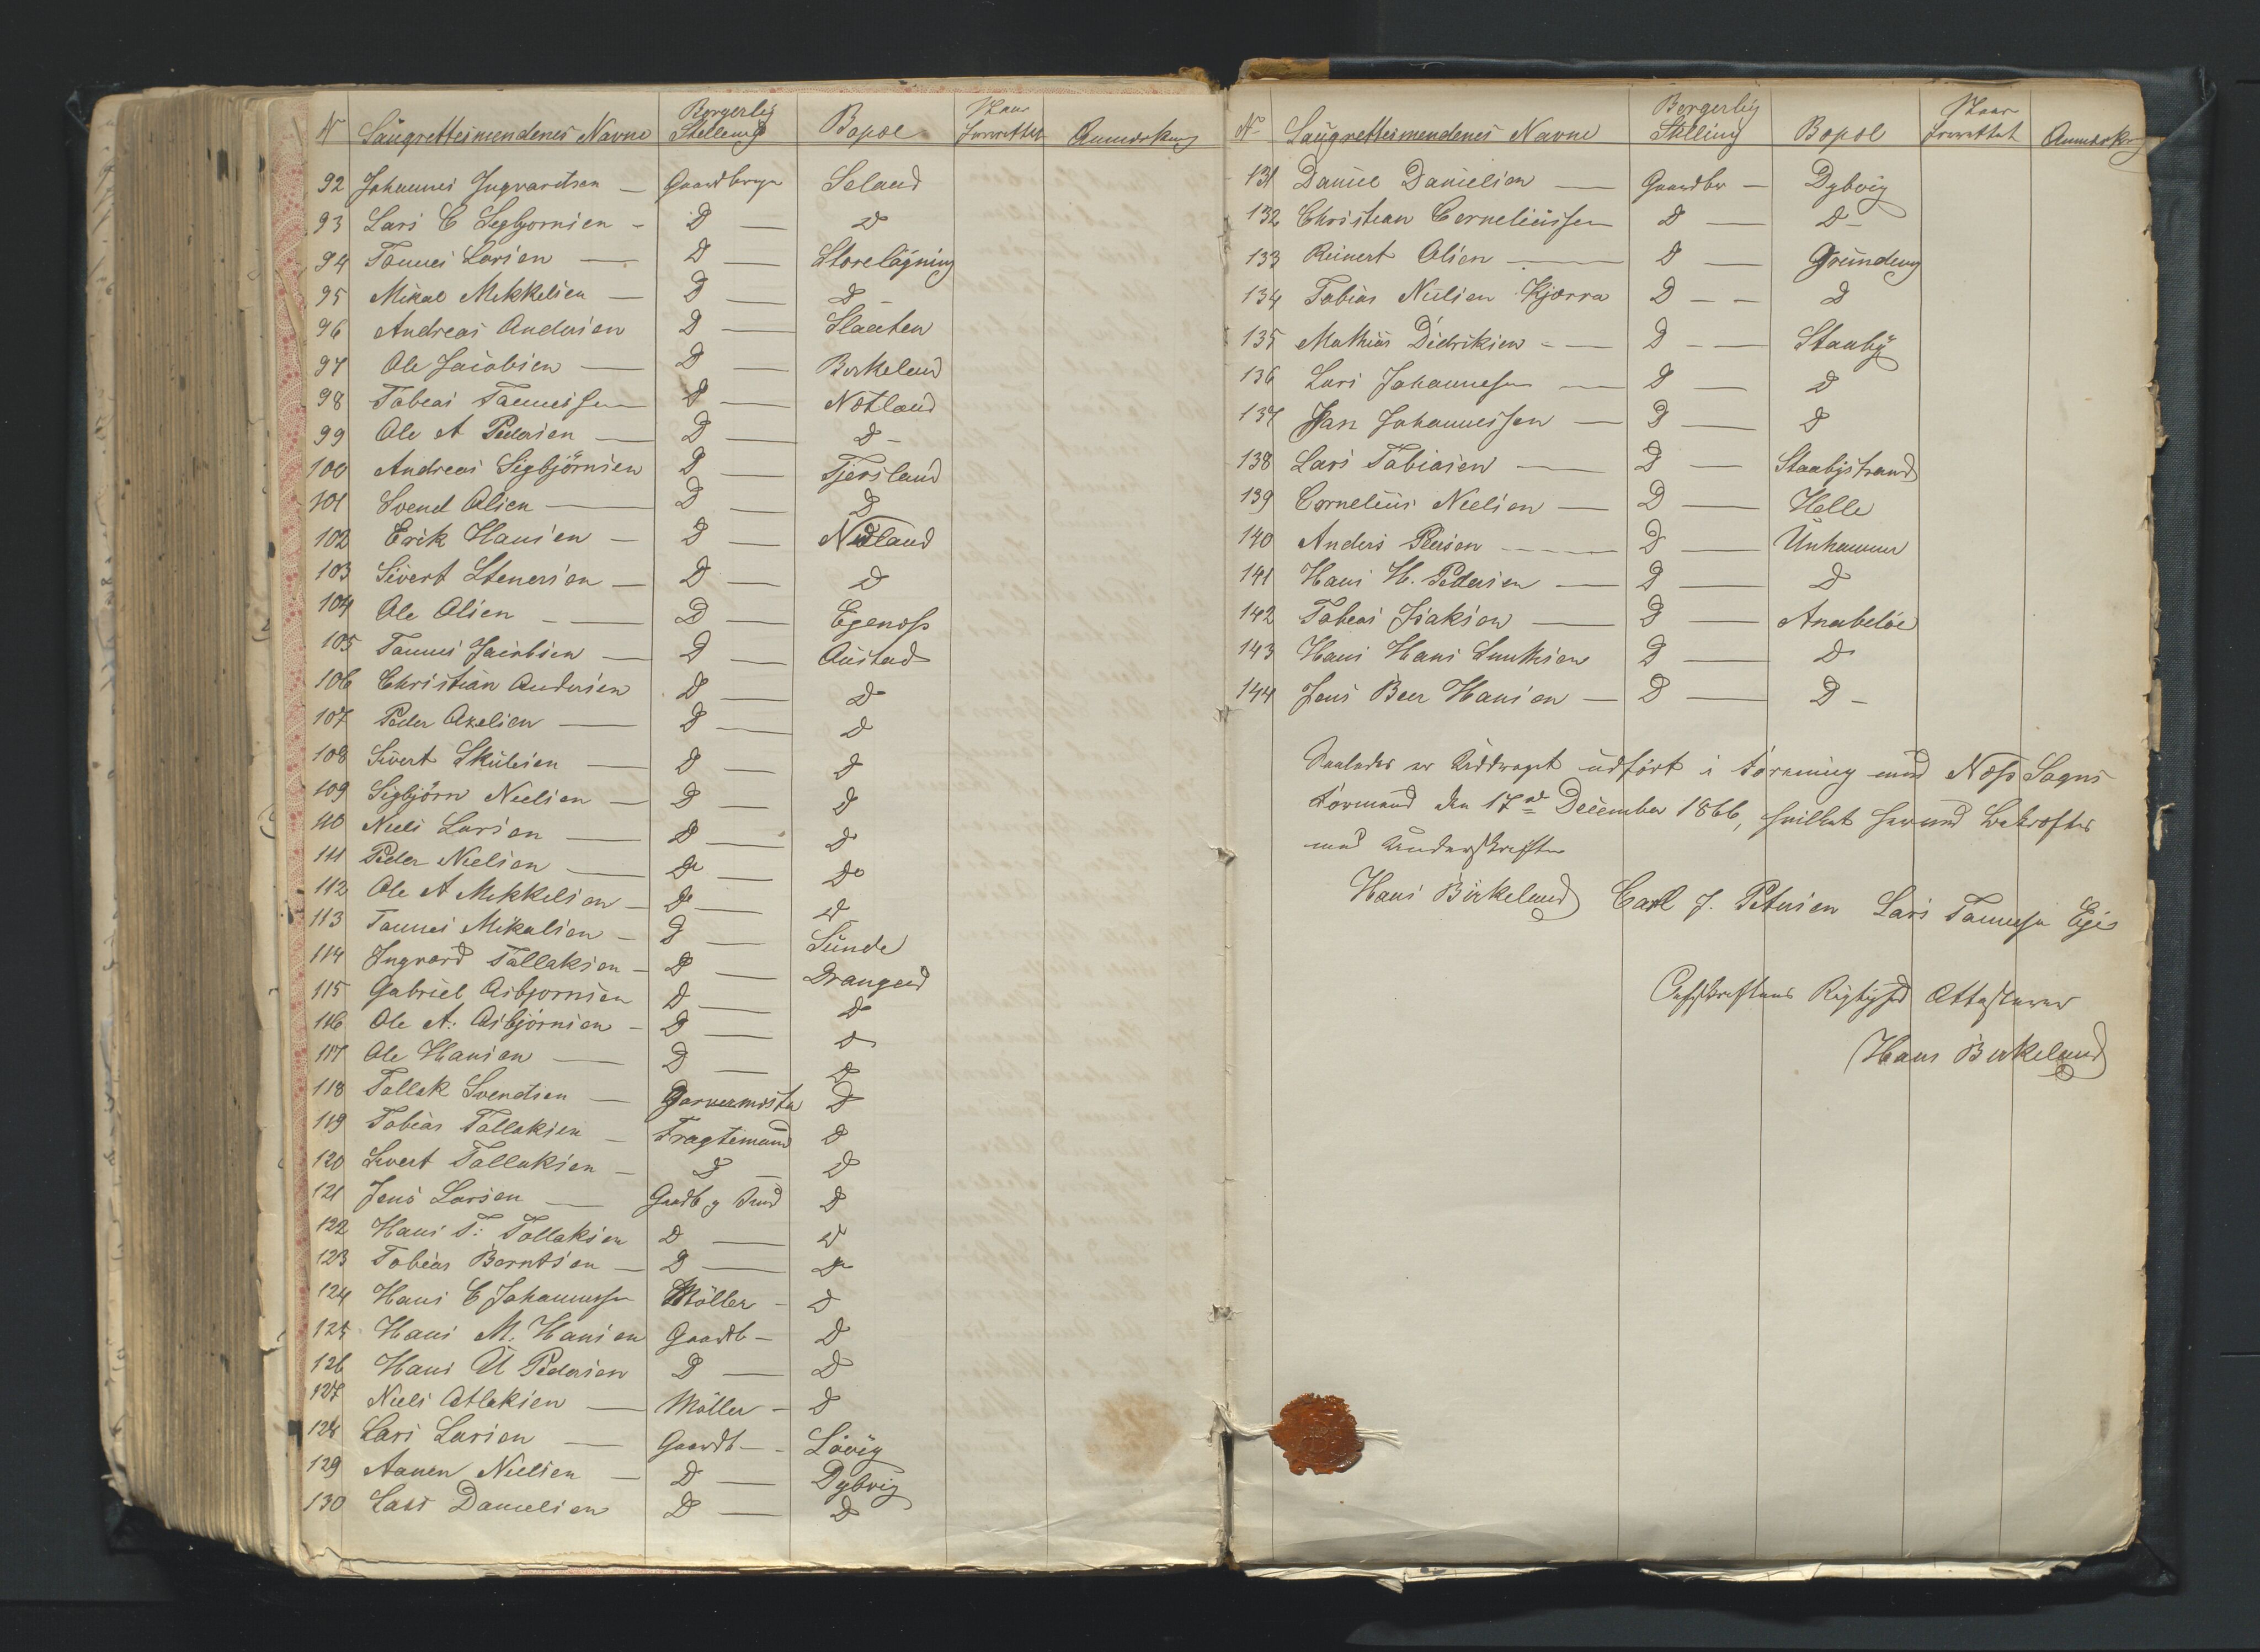 N Laugrettesmendenes Navne Borgerlig Stelling Bopæl Naar Forrettet Anmerkning
92 Johannes Ingvardsen — Gaardbruger Seland
93 Lars C Segbjornsen - D — D
94 Tønnes Larsen — D — Storeløgning
95 Mikal Mekkelsen — D — D -
96 Andreas Andersen D — Slaaten
97 Ole Jacobsen — D — Berkeland
98 Tobias Tønnessen D — Nøtland
99 Ole A Pedersen — D — D -
100 Andreas Sigbjörnsen D — Fjersland
101 Svend Olsen — D — D
102 Erik Hansen — D — Nedland
103 Sivert Stenersen — D — D
104 Ole Olsen — D — Egenæss
105 Tønnes Jacobsen — D — Austad
106 Christian Andersen D — D
107 Peder Axelsen — D — D
108 Sivert Skulesen — D — D
109 Sigbjörn Neelsen — D — D
110 Neels Larsen — D — D
111 Peder Nielsen — Do — Do
112 Ole A Mekkelsen — D — D
113 Tønnes Mikalsen — D — Sunde
114 Ingvard Tallaksen — D — Drangeid
115 Gabriel Asbjornsen D — D
116 Ole A: Asbjörnsen - D — D
117 Ole Hansen — D — D
118 Tallak Svendsen — Garvermester D
119 Tobias Tallaksen — Fragtemand D
120 Sivert Tallaksen — D — D
121 Jens Larsen — Gaadb og Smed D
122 Hans T: Tallaksen D — D
123 Tobias Berntsen — D — D
124 Hans C Johannessen Möller - D
125 Hans M. Hansen Gaardb — D
126 Hans A Pedersen D — D
127 Neels Atlaksen — Möller - D
128 Lars Larsen — Gaardb — Lövig
129 Aanen Neelsen — D — Dybvig
130 Lars Danielsen D — D
No Laugrettesmendenes Navne Borgerlig Stelling Bopæl Naar Forrettet Anmerkn
131 Daniel Danielsen — Gaardbr — Dybvig
132 Christian Corneliussen D — D -
133 Reinert Olsen — D — Grundeng
134 Tobias Neelsen Kjørra D — — D
135 Mathias Didriksen — D — Staaby
136 Lars Johannessen — D — D
137 Jan Johannessen — D — D
138 Lars Tobiasen — D — Staabystrand
139 Cornelius Neelsen — D — Helle
140 Anders Peersen — D — Unhammer
141 Hans H. Pedersen — D — D
142 Tobias Isaksen — D — Anabelöe
143 Hans Hans Smithsen D — D
144 Jens Beer Hansen — D — D -
Saaledes er Uddraget udfört i Forening med Næss Sogns
Formand den 17de December 1866, hvilket herved bekræftes
med Underskrifter
Hans Birkeland Carl J. Petersen Lars Tønnessen Eges
Afskriftens Rigtighed Attesterer
Hans Berkeland